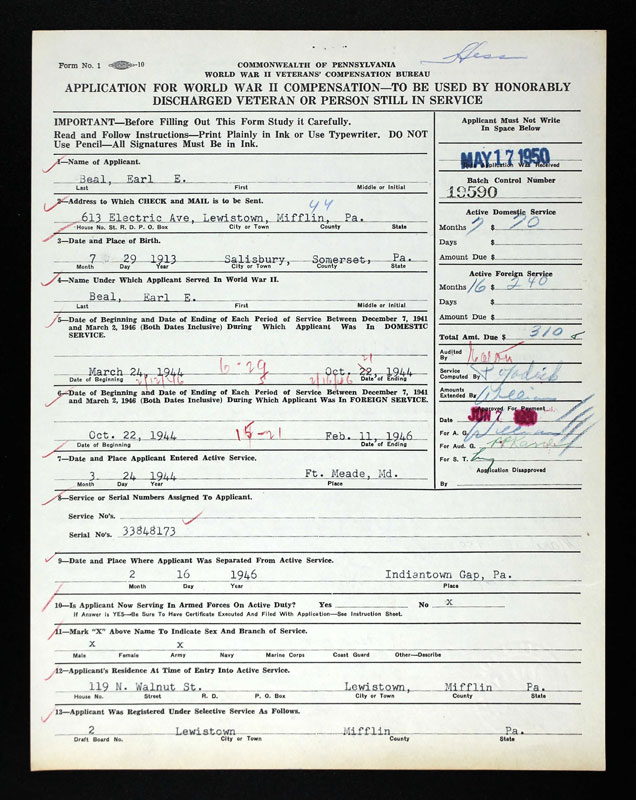 Form No. 1 -10
COMMONWEALTH OF PENNSYLVANIA
Hess
WORLD WAR II VETERANS' COMPENSATION BUREAU
APPLICATION FOR WORLD WAR II COMPENSATION—TO BE USED BY HONORABLY
DISCHARGED VETERAN OR PERSON STILL IN SERVICE
IMPORTANT—Before Filling Out This Form Study it Carefully.
Read and Follow Instructions—Print Plainly in Ink or Use Typewriter. DO NOT
Use Pencil—All Signatures Must Be in Ink.
1—Name of Applicant.
Beal, Earl E.
Last First Middle or Initial
2—Address to Which CHECK and MAIL is to be Sent. 44
613 Electric Ave, Lewistown, Mifflin, Pa.
House No. St. R. D. P. O. Box City or Town County State
3—Date and Place of Birth.
7 29 1913 Salisbury, Somerset, Pa.
Month Day Year City or Town County State
4—Name Under Which Applicant Served In World War II.
Beal, Earl E.
Last First Middle or Initial
5—Date of Beginning and Date of Ending of Each Period of Service Between December 7, 1941
and March 2, 1946 (Both Dates Inclusive) During Which Applicant Was In DOMESTIC
SERVICE.
21
March 24, 1944 6-29 Oct. 22, 1944
Date of Beginning Date of Ending
2/12/46 5 2/16/46
6—Date of Beginning and Date of Ending of Each Period of Service Between December 7, 1941
and March 2, 1946 (Both Dates Inclusive) During Which Applicant Was In FOREIGN SERVICE.
Oct. 22, 1944 15-21 Feb. 11, 1946
Date of Beginning Date of Ending
7—Date and Place Applicant Entered Active Service.
3 24 1944 Ft. Meade, Md.
Month Day Year Place
8—Service or Serial Numbers Assigned To Applicant.
Service No's.
Serial No's. 33848173
9—Date and Place Where Applicant Was Separated From Active Service.
2 16 1946 Indiantown Gap, Pa.
Month Day Year Place
10—Is Applicant Now Serving In Armed Forces On Active Duty? Yes No X
If Answer is YES—Be Sure To Have Certificate Executed And Filed With Application—See Instruction Sheet.
11—Mark "X" Above Name To Indicate Sex And Branch of Service.
X X
Male Female Army Navy Marine Corps Coast Guard Other—Describe
12—Applicant's Residence At Time of Entry Into Active Service.
119 N. Walnut St. Lewistown, Mifflin Pa.
House No. Street R. D. P. O. Box City or Town County State
13—Applicant Was Registered Under Selective Service As Follows.
2 Lewistown Mifflin Pa.
Draft Board No. City or Town County State
Applicant Must Not Write
In Space Below
MAY 17 1950
Application Was Received
Batch Control Number
19590
Active Domestic Service
Months 7 $ 70
Days $
Amount Due $
Active Foreign Service
Months 16 $ 240
Days $
Amount Due $
Total Amt. Due $ 310
Audited
By
Service
Computed By
Amounts
Extended By
Approved For Payment
Date JUN 7 1950
For A. G.
For Aud. G.
For S. T.
Application Disapproved
By